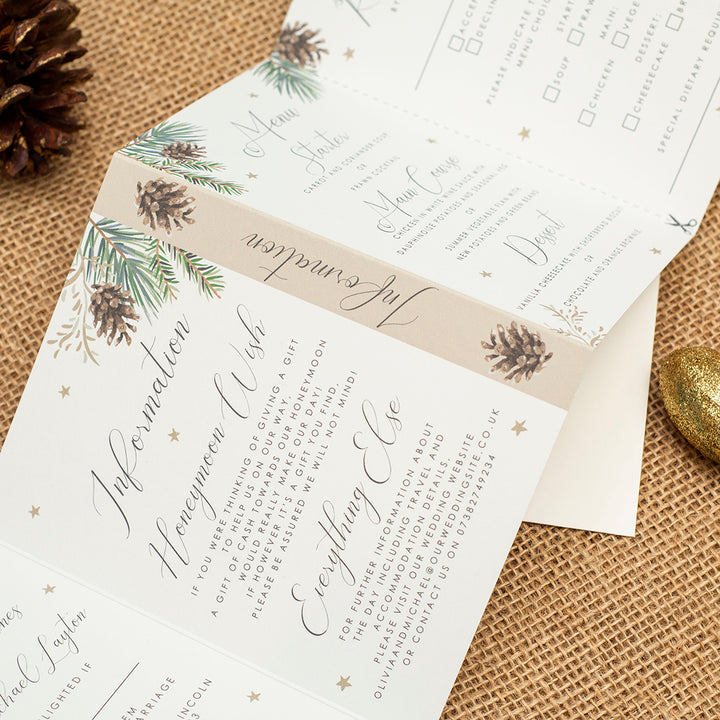 BY
ACCE
DECLIN
PLEASE INDICATE
MENU CHOIC
STAR
SOUP
PRAW
MAIN:
CHICKEN
VEGE
DESSERT:
CHEESECAKE
BR
SPECIAL DIETARY REQU
Menu
Starter
CARROT AND CORIANDER SOUP
OR
PRAWN COCKTAIL
Main Course
CHICKEN IN WHITE WINE SAUCE WITH
DAUPHINOISE POTATOES AND SEASONAL VEG
OR
SUMMER VEGETABLE PLAIT WITH
NEW POTATOES AND GREEN BEANS
Desert
VANILLA CHEESECAKE WITH SHORTBREAD BISCUIT
OR
CHOCOLATE AND ORANGE BROWNIE
Information
Information
Honeymoon Wish
IF YOU WERE THINKING OF GIVING A GIFT
TO HELP US ON OUR WAY,
A GIFT OF CASH TOWARDS OUR HONEYMOON
WOULD REALLY MAKE OUR DAY!
IF HOWEVER IT'S A GIFT YOU FIND,
PLEASE BE ASSURED WE WILL NOT MIND!
Everything Else
FOR FURTHER INFORMATION ABOUT
THE DAY INCLUDING TRAVEL AND
ACCOMMODATION DETAILS,
PLEASE VISIT OUR WEDDING WEBSITE
OLIVIAANDMICHAEL@OURWEDDINGSITE.CO.UK
OR CONTACT US ON 07382749234
mes
chael Layton
HLIGHTED IF
EM
ARRIAGE
LINCOLN